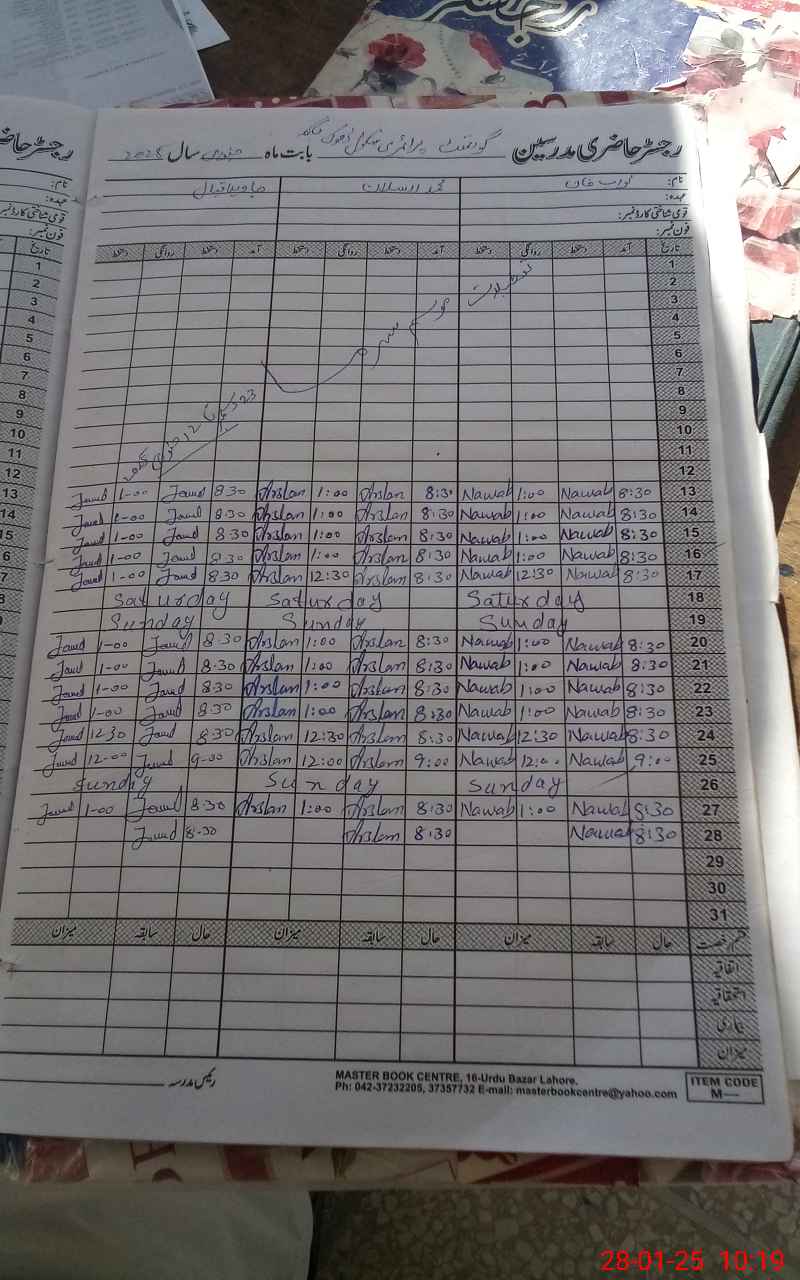 رجسٹر
رجسٹر حاضری مدرسین گورنمنٹ پرائمری سکول ڈھوک بابت ماہ جنوری سال 2025
نام: نواب خان محمد ارسلان جاوید اقبال
عہدہ:
قومی شناختی کارڈ نمبر:
فون نمبر:
تاریخ آمد دستخط روانگی دستخط آمد دستخط روانگی دستخط آمد دستخط روانگی دستخط
1
2
3
4
5
6
7
8
9
10
11
12
تعطیلات موسم سرما
23 دسمبر تا 12 جنوری
13 8:30 Nawab 1:00 Nawab 8:30 Arslan 1:00 Arslan 8:30 Javed 1-00 Javed
14 8:30 Nawab 1:00 Nawab 8:30 Arslan 1:00 Arslan 8:30 Javed 1-00 Javed
15 8:30 Nawab 1:00 Nawab 8:30 Arslan 1:00 Arslan 8:30 Javed 1-00 Javed
16 8:30 Nawab 1:00 Nawab 8:30 Arslan 1:00 Arslan 8:30 Javed 1-00 Javed
17 8:30 Nawab 12:30 Nawab 8:30 Arslan 12:30 Arslan 8:30 Javed 1-00 Javed
18 Saturday Saturday Saturday
19 Sunday Sunday Sunday
20 8:30 Nawab 1:00 Nawab 8:30 Arslan 1:00 Arslan 8:30 Javed 1-00 Javed
21 8:30 Nawab 1:00 Nawab 8:30 Arslan 1:00 Arslan 8:30 Javed 1-00 Javed
22 8:30 Nawab 1:00 Nawab 8:30 Arslan 1:00 Arslan 8:30 Javed 1-00 Javed
23 8:30 Nawab 1:00 Nawab 8:30 Arslan 1:00 Arslan 8:30 Javed 1-00 Javed
24 8:30 Nawab 12:30 Nawab 8:30 Arslan 12:30 Arslan 8:30 Javed 12-30 Javed
25 9:00 Nawab 12:00 Nawab 9:00 Arslan 12:00 Arslan 9-00 Javed 12-00 Javed
26 Sunday Sunday Sunday
27 8:30 Nawab 1:00 Nawab 8:30 Arslan 1:00 Arslan 8:30 Javed 1-00 Javed
28 8:30 Nawab 8:30 Arslan 8-30 Javed
29
30
31
قسم رخصت حال سابقہ میزان حال سابقہ میزان حال سابقہ میزان
اتفاقیہ
استحقاقیہ
بیماری
میزان
رئیس مدرسہ
MASTER BOOK CENTRE, 16-Urdu Bazar Lahore.
Ph: 042-37232205, 37357732 E-mail: masterbookcentre@yahoo.com
ITEM CODE
M—
28-01-25 10:19